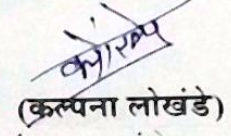 (कल्पना लोखंडे)